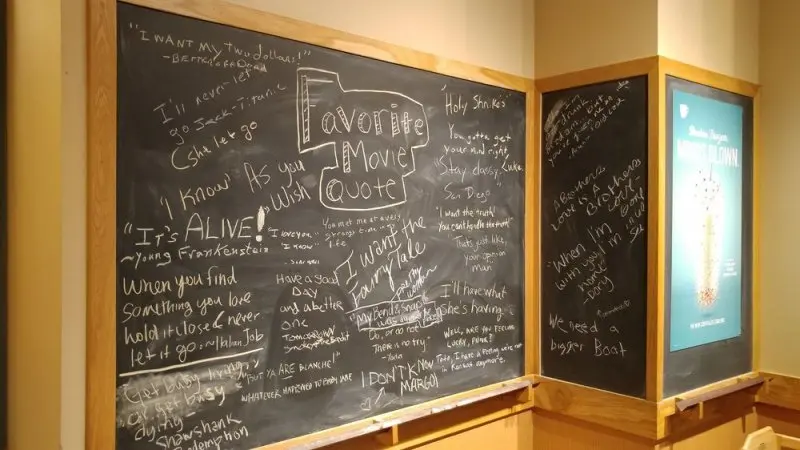 "I WANT MY TWO dollars!"
I'll never let
go Jack-Titanic
(she let go
Favorite
Movie
Quote
"I KNOW"
As you
Wish
"It's ALIVE!"
~Young Frankenstein
When you find
something you love
hold it close & never
let it go: ~Italian Job
Get busy
or get busy
dying
Shawshank
Redemption
You met me at a very
strange time in
life
"I love you"
"I know"
Have a good
DAY
and a better
one
Tomorrow
I Want the
Fairy Tale
woman
"My bend & snap
Do, or do not
There is no try"
-Yoda
"BUT YA ARE BLANCHE!"
WHATEVER HAPPENED TO BABY JANE
I DON'T KNOW
MARGO!
"Holy Shnikes"
You gotta get
your mind right,
Luke.
"Stay classy,
San Diego"
"I want the truth!
You can't handle the truth!"
That's just like,
your opinion
man
I'll have what
she's having
Well, ARE YOU FEELING
LUCKY, PUNK?
Toto, I have a feeling we're not
in Kansas anymore.
drunk
A Brothers
Love is a
Brothers
Love
"When I'm
with you I'm
home"
-Dory
We need a
bigger Boat
BLOWN.